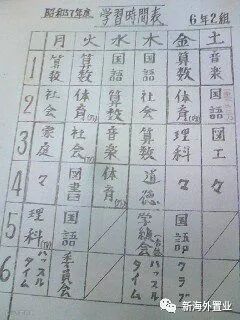 昭和57年度 学習時間表 6年2組
月 火 水 木 金 土
1 算数 算数 国語 国語 算数 音楽
2 社会 体育 国語 社会 体育 国語
3 家庭 社会 音楽 算数 理科 図工
4 々 図書 体育 道徳 々 々
5 理科 国語 学級会 国語
6 ハッスルタイム 委員会 ハッスルタイム クラブ
新海外置业